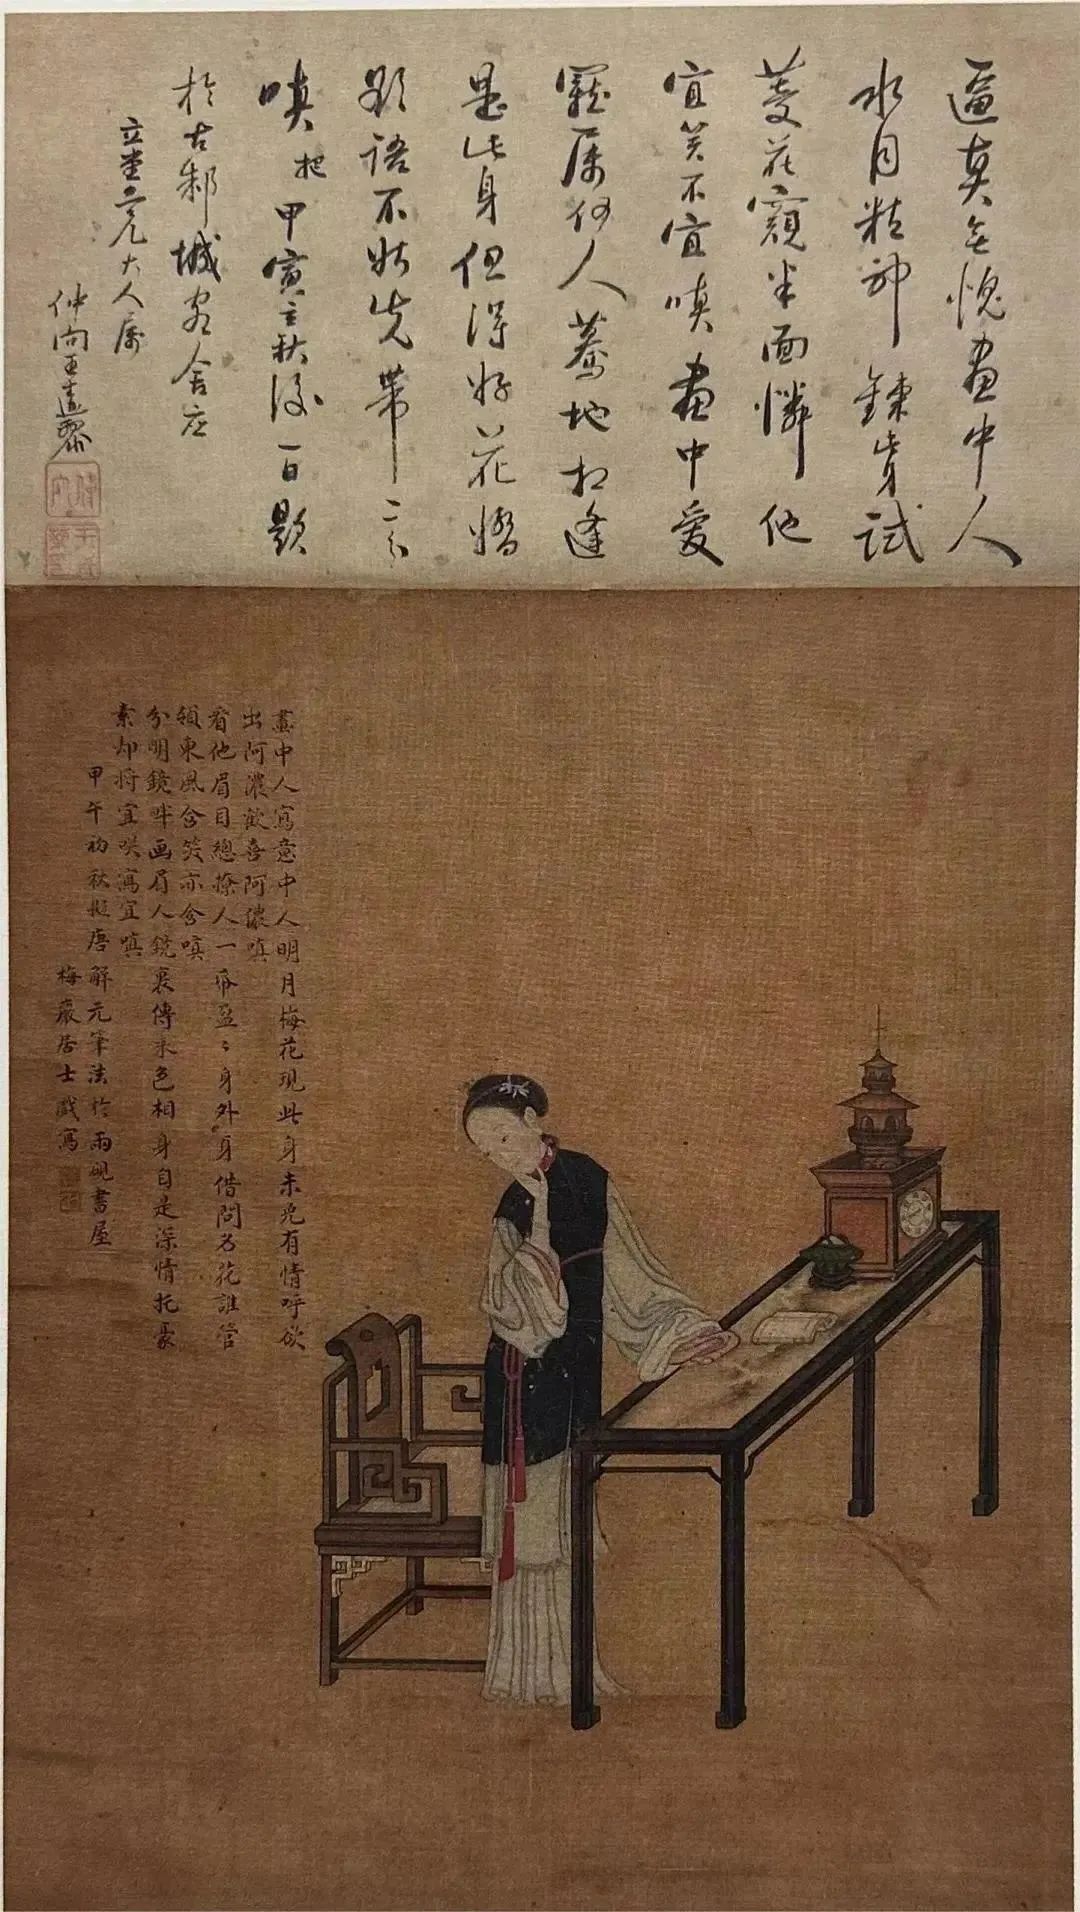 逼真無愧畫中人
水月精神鍊背試
菱花窺半面憐他
宜笑不宜嗔畫中愛
寵属何人驀地相逢
是此身但得好花嬌
解語不妨先帶三分
嗔 甲寅立秋後一日題
於古鄀城客舍应
立堂六兄大人属
仲尚王
畫中人寫意中人明月梅花現此身未免有情呼欲
出阿濃歡喜阿濃嗔
看他眉目總撩人一幅盈盈身外身借問名花誰管
領東風含笑亦含嗔
分明鏡畔画眉人鏡裏傳來色相身自是深情托豪
素却將宜咲寫宜嗔
甲午初秋拟唐解元筆法於雨硯書屋
梅巖居士戲寫